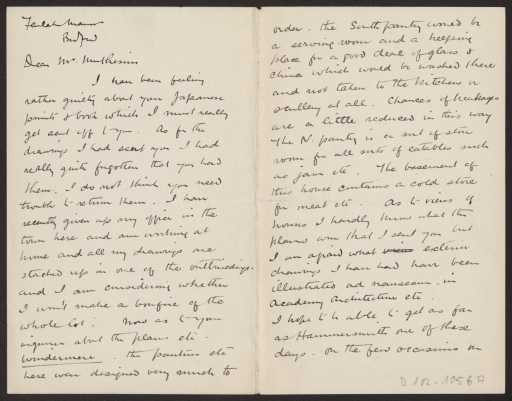 Manor
Bedford
Dear Mr. Muthesius
I have been feeling
rather guilty about your Japanese
prints & book which I must really
get sent off to you. As for the
drawings I had sent you I had
really quite forgotten that you had
them. I do not think you need
trouble to return them. I have
recently given up my office in the
town here and am working at
home and all my drawings are
stacked up in one of the outbuildings.
and I am considering whether
I won't make a bonfire of the
whole lot. Now as to your
inquiries about the plans etc.
Windermere. The pantries etc
here were designed very much to
order. The South pantry would be
a serving room and a keeping
place for a good deal of glass &
china which would be washed there
and not taken to the kitchen or
scullery at all. Chances of breakages
are a little reduced in this way
The N. pantry is a sort of store
room for all sorts of eatables such
as jam etc. The basement of
this house contains a cold store
for meat etc. As to views of
houses I hardly know what the
plans were that I sent you but
I am afraid what exterior
drawings I have had have been
illustrated ad nauseum in
Academy Architecture etc.
I hope to be able to get as far
as Hammersmith one of these
days. On the few occasions on
D 102-1256 A